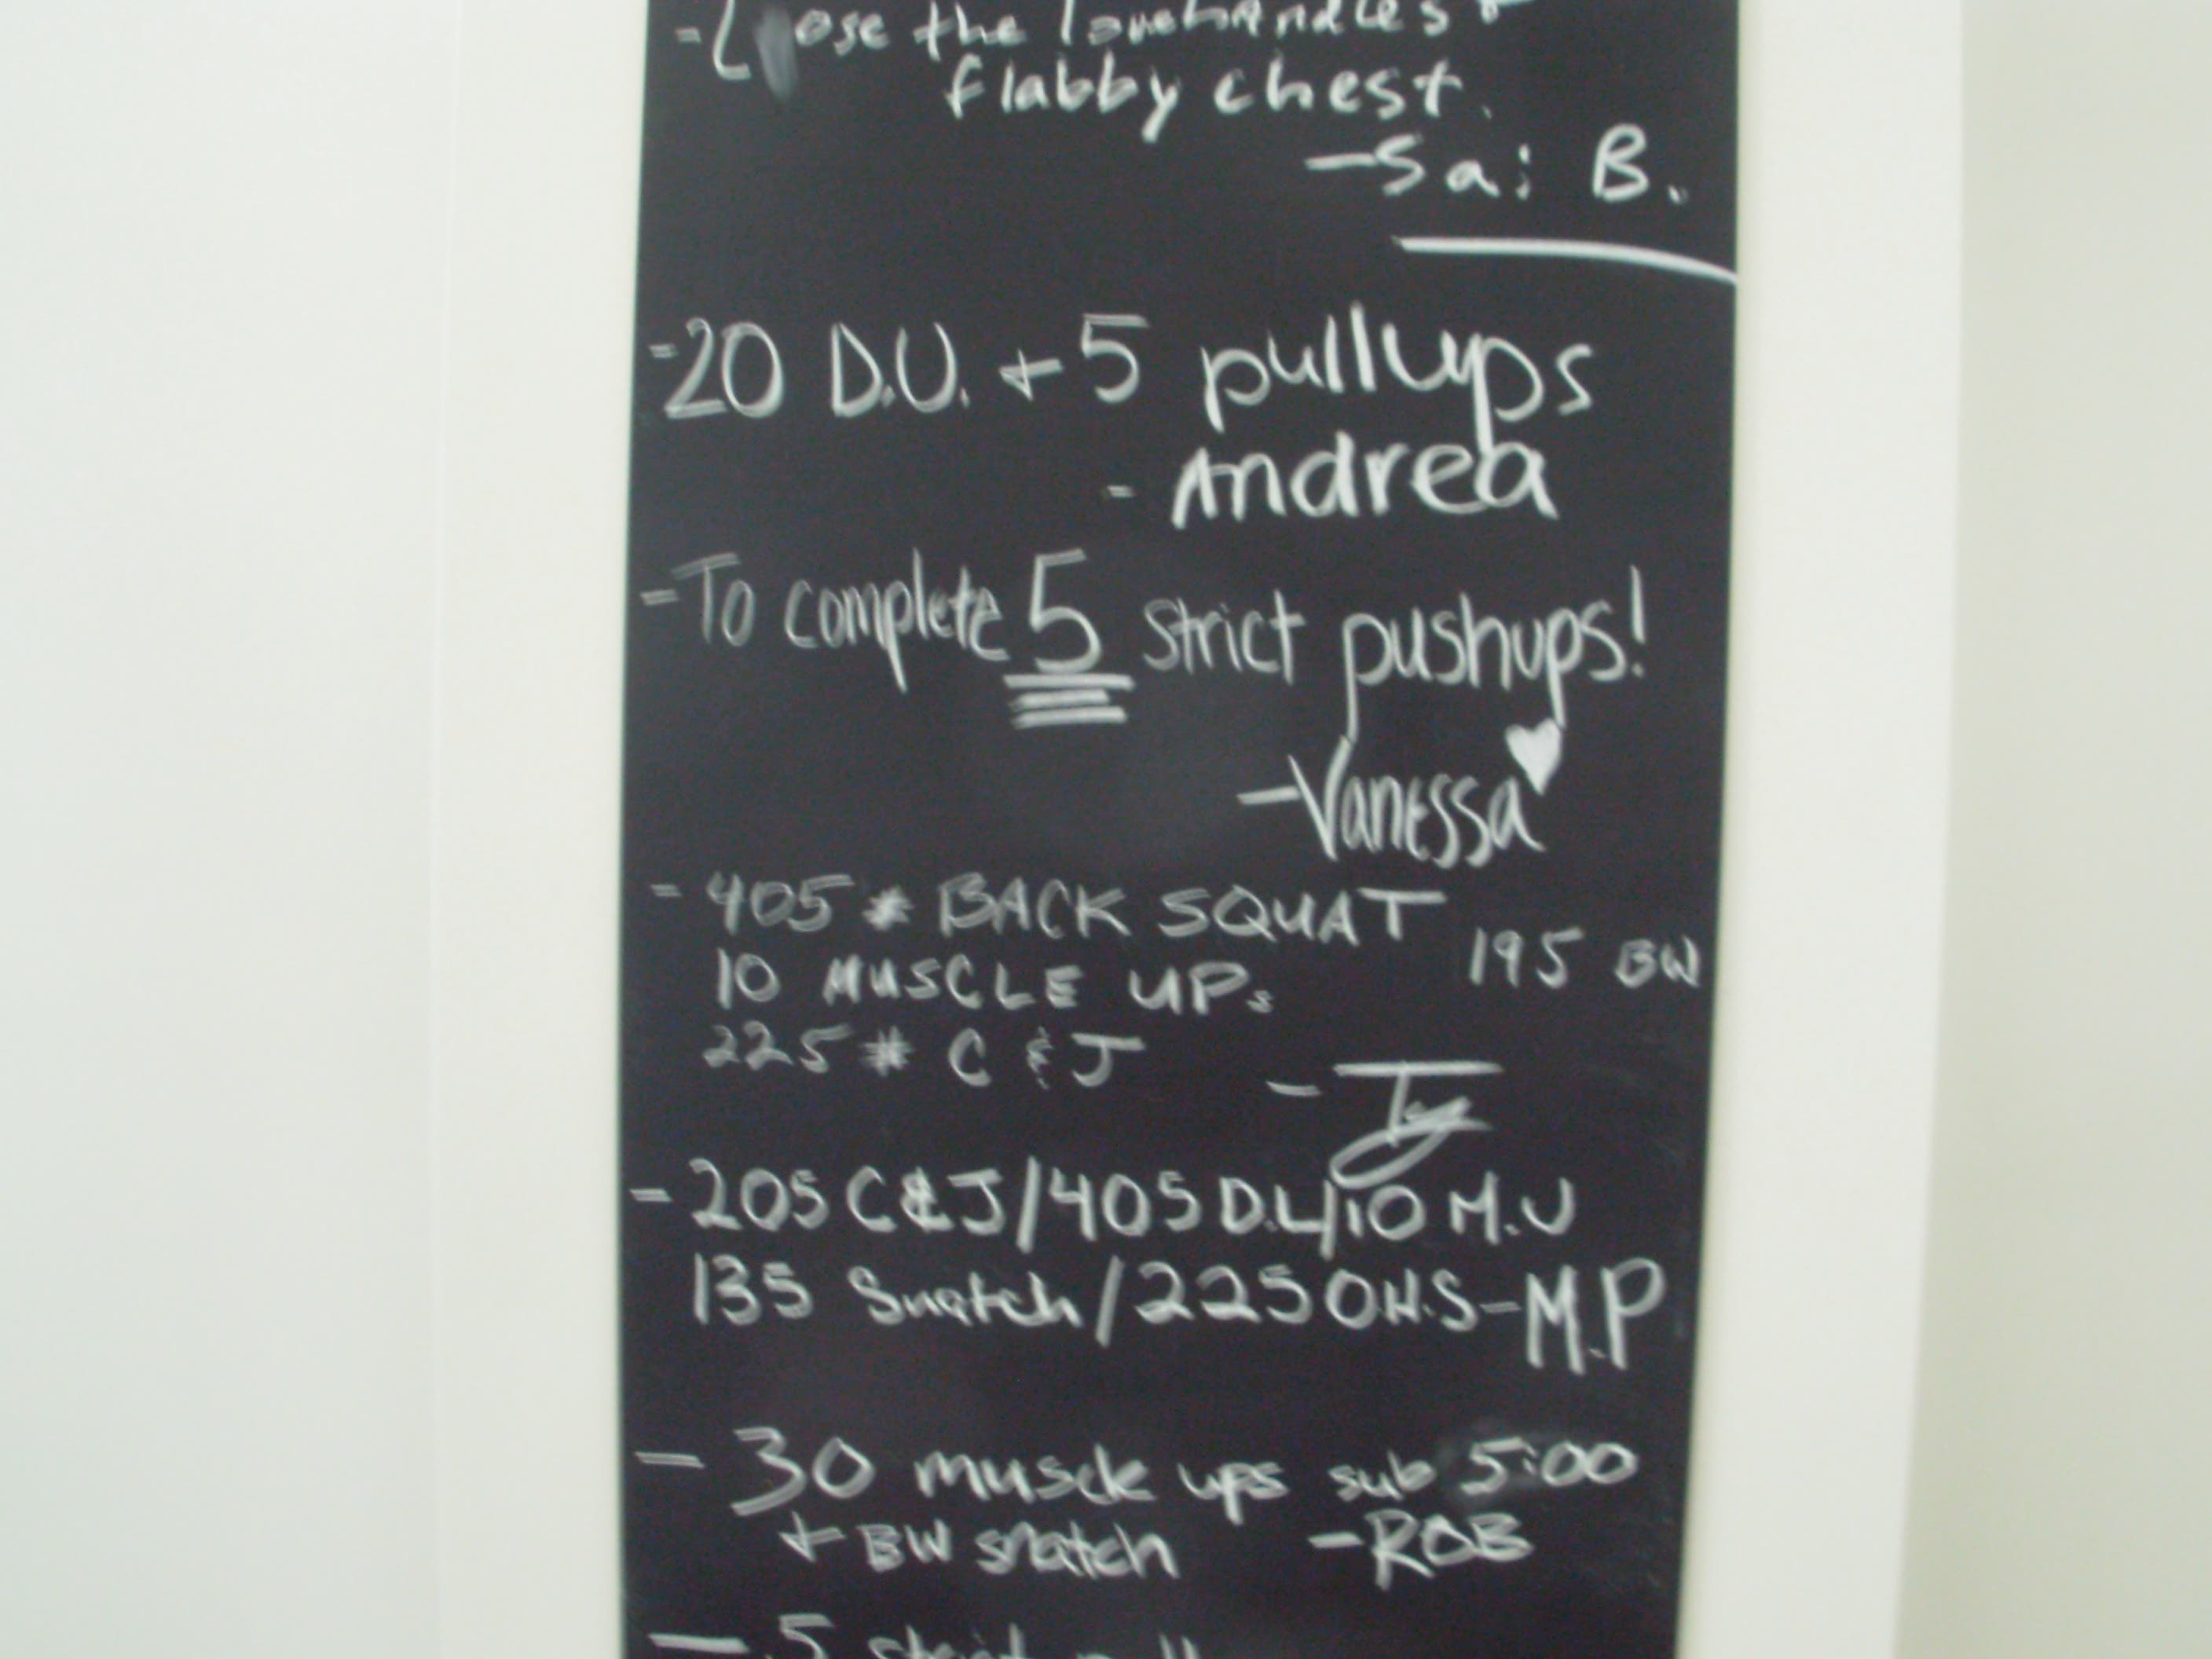 - Lose the lovehandles +
flabby chest.
- Sai B.
- 20 D.U. + 5 pullups
- Andrea
- To complete 5 strict pushups!
- Vanessa ♥
- 405 # BACK SQUAT
195 BW
10 MUSCLE UPs
225 # C & J
- Ty
- 205 C&J/405 D.L/10 M.U
135 Snatch/225 OH.S - M.P
- 30 muscle ups sub 5:00
+ BW snatch - ROB
- 5 strict